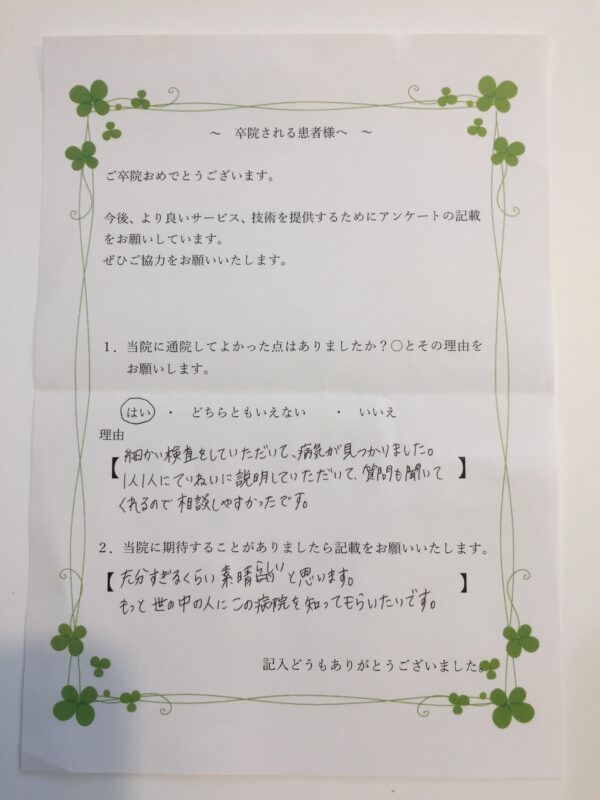 ～　卒院される患者様へ　～
ご卒院おめでとうございます。
今後、より良いサービス、技術を提供するためにアンケートの記載
をお願いしています。
ぜひご協力をお願いいたします。
１．当院に通院してよかった点はありましたか？〇とその理由を
お願いします。
はい　・　どちらともいえない　　・　いいえ
理由
【細かい検査をしていただいて、病気が見つかりました。
1人1人にていねいに説明していただいて、質問も聞いて】
くれるので相談しやすかったです。
２．当院に期待することがありましたら記載をお願いいたします。
【充分すぎるくらい素晴らしいと思います。】
もっと世の中の人にこの病院を知ってもらいたいです。
記入どうもありがとうございました。